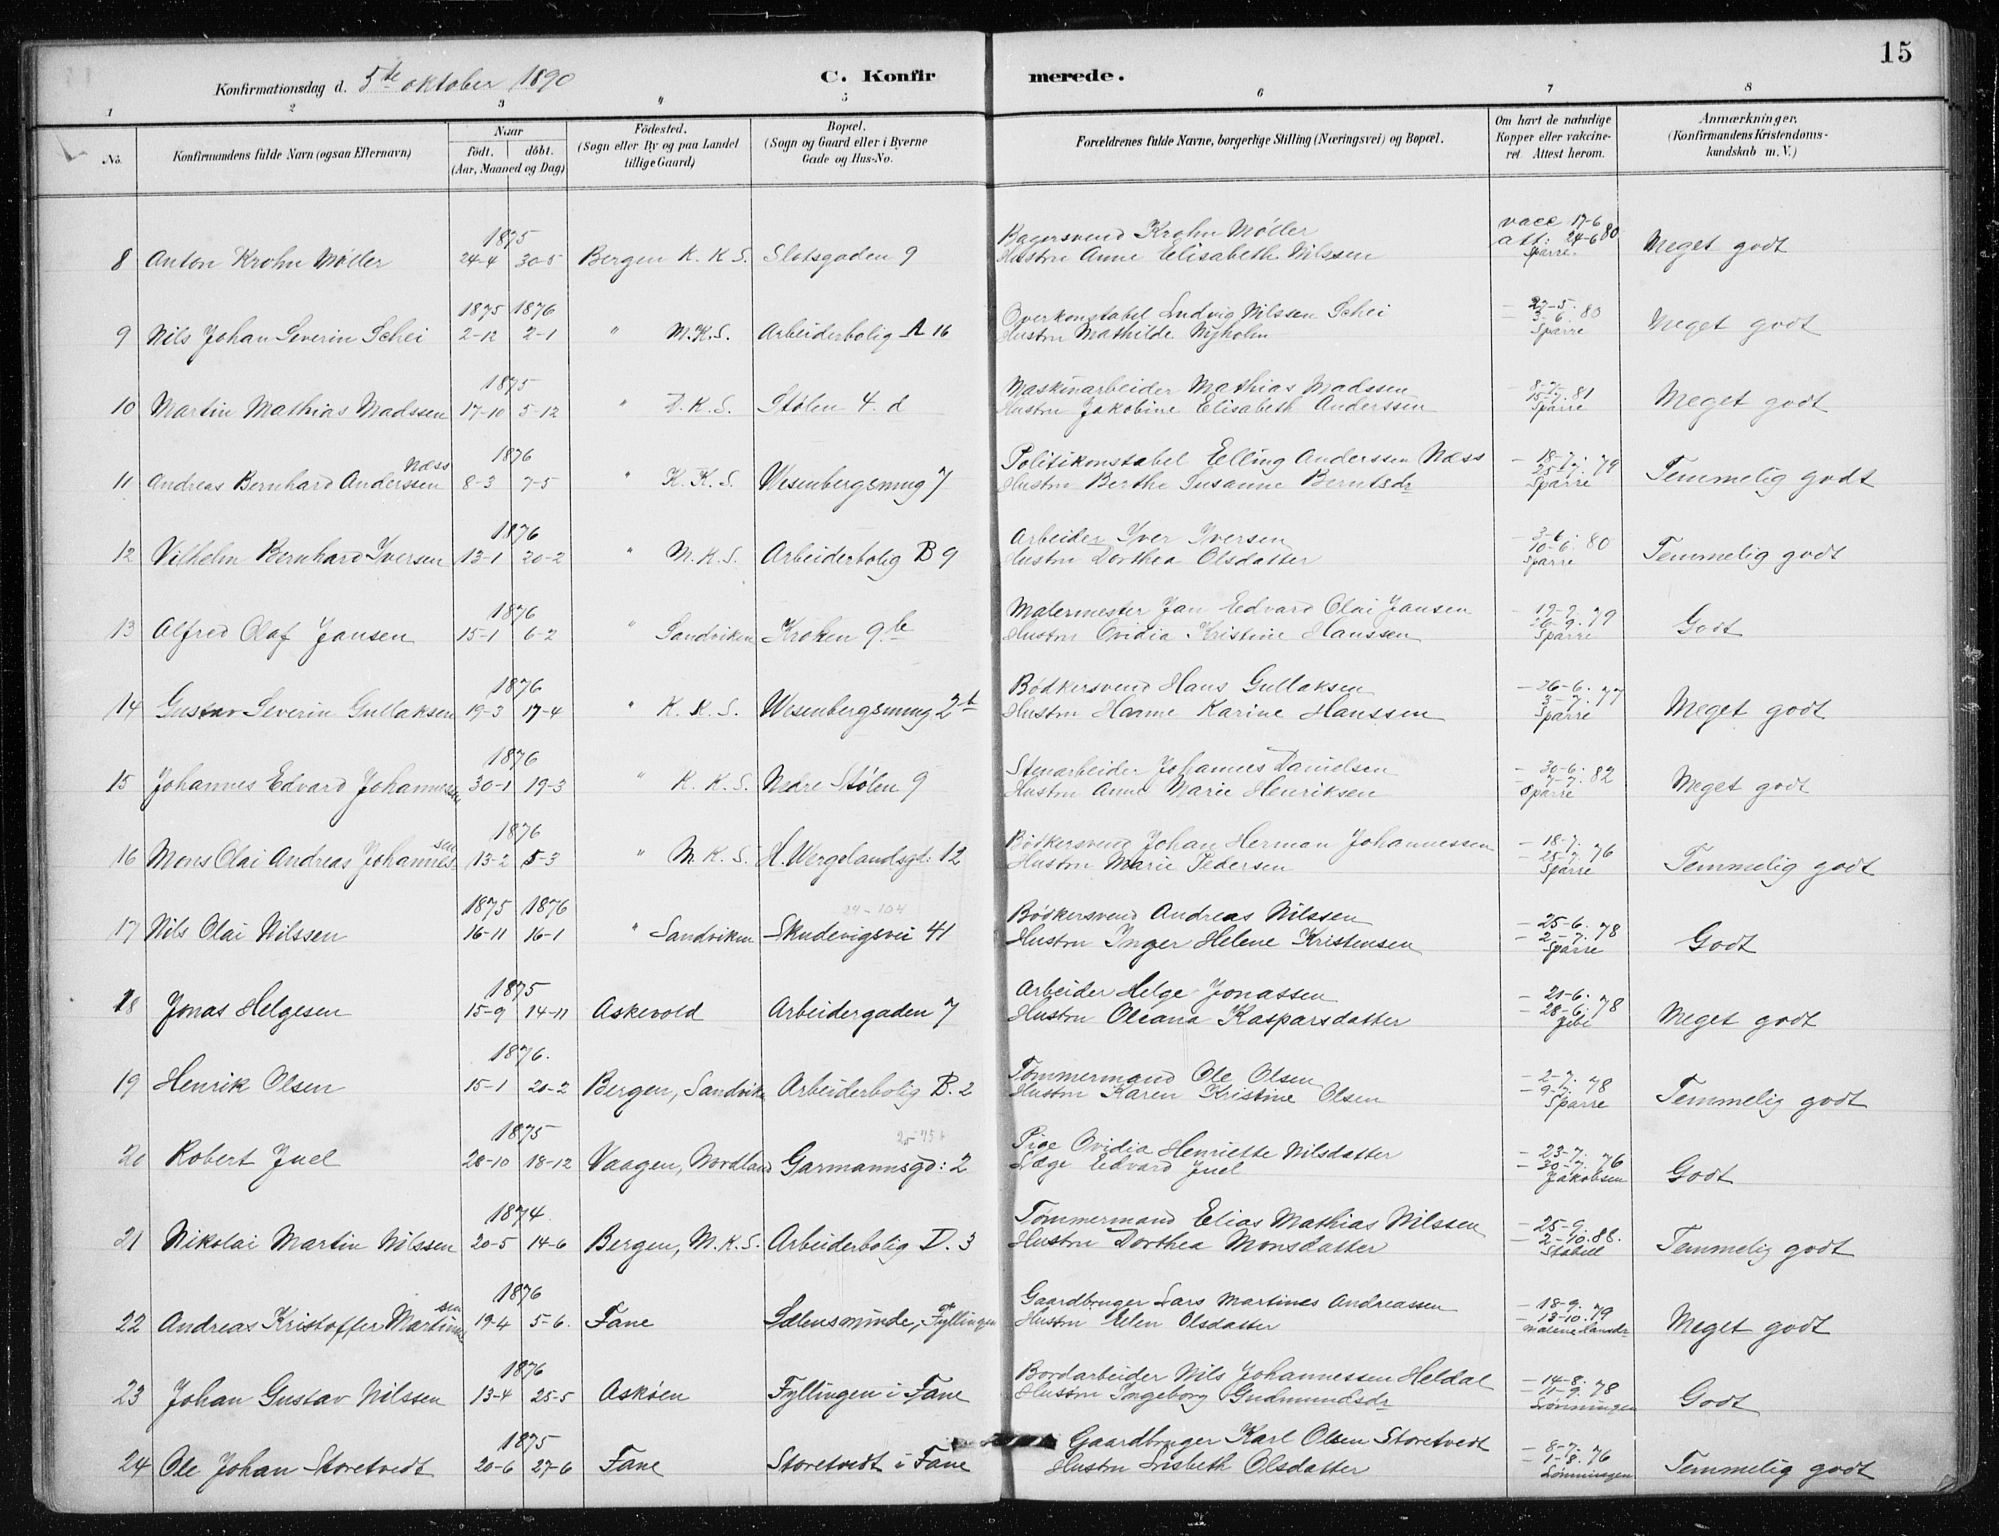 15
Konfirmationsdag d. 5te oktober 1890 C. Konfirmerede.
1 2 3 4 5 6 7 8
No. Konfirmandens fulde Navn (ogsaa Efternavn) Naar Födt. döbt. (Aar, Maaned og Dag) Födested. (Sogn eller By og paa Landet tillige Gaard) Bopæl. (Sogn og Gaard eller i Byerne Gade og Hus-No. Forældrenes fulde Navne, borgerlige Stilling (Næringsvei) og Bopæl. Om havt de naturlige Kopper eller vakcineret. Attest herom. Anmærkninger. (Konfirmandens Kristendomskundskab m. V.)
1875 Bagersvend Krohn Møller vacc 17-6
8 Anton Krohn Møller 24-4 30-5 Bergen K. K. S. Slotsgaden 9 Hustru Anne Elisabeth Nilssen att: 24-6 80 Sparre Meget godt
1875 1876 Overkonstabel Ludvig Nilssen Schei
9 Nils Johan Severin Schei 2-12 2-1 " M.K.S. Arbeiderbolig A 16 Hustru Mathilde Nyholm - 27-5. - 3-6. 80 Sparre Meget godt
1875 Maskinarbeider Mathias Madssen
10 Martin Mathias Madssen 17-10 5-12 " D.K.S. Stølen 4. d Hustru Jakobine Elisabeth Anderssen - 8-7. 15-7. 81 Sparre Meget godt
Næss 1876 Politikonstabel Elling Anderssen Næss
11 Andreas Bernhard Anderssen 8-3 7-5 " K.K.S. Wesenbergsmug 7 Hustru Berthe Susanne Berntsdr - 18-7. 25-7. 79 Sparre Temmelig godt
1876 Arbeider Iver Iversen
12 Vilhelm Bernhard Iversen 13-1 20-2 " M.K.S. Arbeiderbolig B 9 Hustru Dorthea Olsdatter - 3-6 10-6. 80 Sparre Temmelig godt
1876 Malermester Jan Edvard Olai Jansen
13 Alfred Olaf Jansen 15-1 6-2 " Sandviken Kroken 9.b Hustru Ovidia Kristine Hanssen - 19-9. 26-9. 79 Sparre Godt
1876 Bødkersvend Hans Gullaksen
14 Gustav Severin Gullaksen 19-3 17-4 " K.K.S. Wesenbergsmug 2b Hustru Hanne Karine Hanssen - 26-6. 3-7. 77 Sparre Meget godt
1876 Stenarbeider Johannes Danielsen
15 Johannes Edvard Johannessen 30-1 19-3 " K.K.S. Nedre Stølen 9 Hustru Anne Marie Henriksen - 30-6. - 7-7. 82 Sparre Meget godt
1876 Bødkersvend Johan Herman Johannessen
16 Mons Olai Andreas Johannessen 13-2 5-3 " M.K.S. H. Wergelandsgt: 12 Hustru Marie Pedersen - 18-7. - 25-7. 76 Sparre Temmelig godt
1875 1876 24-104 Bødkersvend Andreas Nilssen
17 Nils Olai Nilssen 16-11 16-1 " Sandviken Skudevigsvei 41 Hustru Inger Helene Kristensen - 25-6. - 2-7. 78 Sparre Godt
1875 Arbeider Helge Jonassen
18 Jonas Helgesen 15-9 14-11 Askevold Arbeidergaden 7 Hustru Oleana Kasparsdatter - 21-6. - 28-6. 78 Meget godt
1876. Tømmermand Ole Olsen
19 Henrik Olsen 15-1 20-2 Bergen, Sandviken Arbeiderbolig B. 2 Hustru Karen Kristine Olsen - 2-7. - 9-7. 78 Sparre Temmelig godt
1875 Pige Ovidia Henriette Nilsdatter
20 Robert Juel 28-10 18-12 Vaagen, Nordland Garmannsgd: 2 Læge Edvard Juel - 23-7. - 30-7. 76 Jakobsen Godt
1874. Tømmermand Elias Mathias Nilssen
21 Nikolai Martin Nilssen 20-5 14-6 Bergen, M.K.S. Arbeiderbolig D. 3 Hustru Dorthea Monsdatter - 25-9. - 2-10. 88. Stabell Temmelig godt
1876 Gaardbruger Lars Martines Andreassen
22 Andreas Kristoffer Martinussen 19-4 5-6. Fane Sælensminde, Fyllingen Hustru Elen Olsdatter - 18-9. - 13-10. 79 Meget godt
1876 Bordarbeider Nils Johannessen Heldal
23 Johan Gustav Nilssen 13-4 25-5 Askøen Fyllingen i Fane Hustru Ingeborg Gudmundsdr - 14-8. - 11-9. 78 Lønningen Godt
1875 Gaardbruger Karl Olsen Storetvedt
24 Ole Johan Storetvedt 20-6 27-6 Fane Storetvedt i Fane Hustru Lisbeth Olsdatter - 8-7. - 1-8. 76 Lønningen Temmelig godt